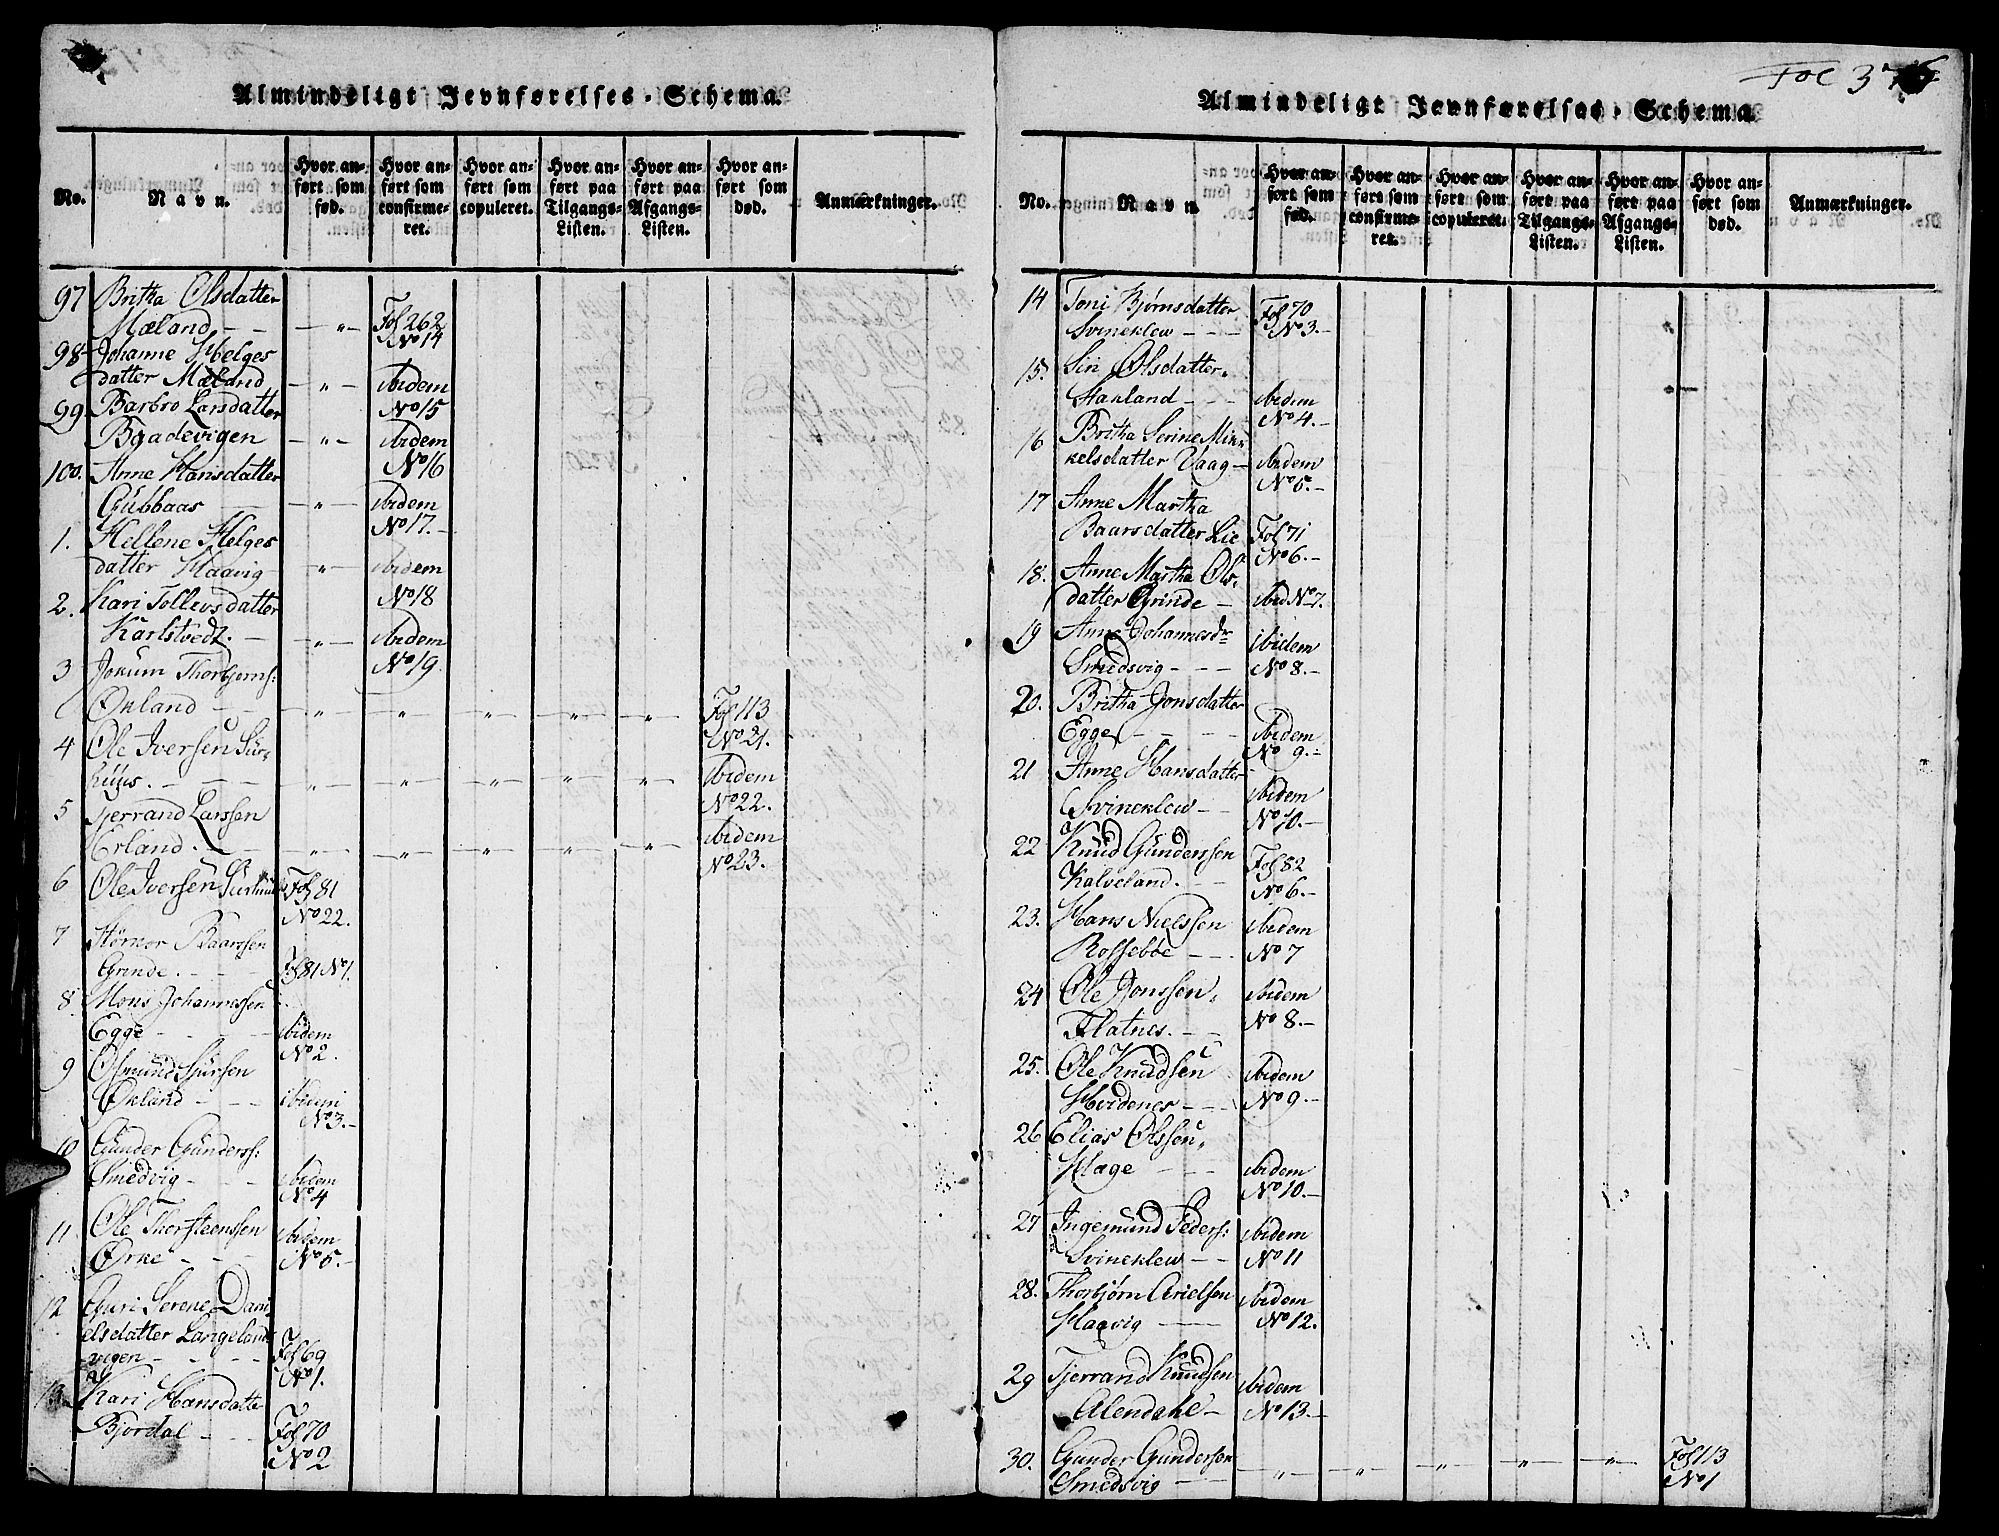 Almindeligt Jevnførelses-Schema.
No.
Navn.
Hvor an-
ført som
fød.
Hvor an-
ført som
confirme-
ret.
Hvor an-
ført som
copuleret.
Hvor an-
ført paa
Tilgangs-
Listen.
Hvor an-
ført paa
Afgangs-
Listen.
Hvor an-
ført som
død.
Anmærkninger.
97 Britha Olsdatter
Mæland - - — " — Fol 262
No 14
98 Johanne Helges
datter Mæland — " — ibidem
No 15
99 Barbro Larsdatter
Bgadevigen — " — ibidem
No 16
100. Anne Hansdatter
Gubbaas — " — ibidem
No 17. -
1. Hellene Helges
datter Haavig — " — ibidem
No 18
2. Kari Tollevsdatter
Karlstvedt. — " — ibidem
No 19.
3 Jokum Thorbjorns:
Økland - - — " — " — " — " — " — Fol 113
No 21.
4 Ole Iversen Sür-
hüüs. — " — " — " — " — " — ibidem
No 22.
5 Tjerrand Larssen
Erland. — " — " — " — " — " — ibidem
No 23.
6 Ole Iversen Fol 81
No 22.
7 Størkor Baarssen
Grinde. - - - Fol 81 No 1.
8. Mons Johannessen
Egge - - - - ibidem
No 2.
9 Osmund Sjürsen
Økland - - - ibidem
No 3. -
10 Gunder Gunderss:
Smedvig - - - ibidem
No 4
11 Ole Thorsteenssen
Ørke - - ibidem
No 5. -
12 Guri Serene Dani
elsdatter Langelands
vigen - - - - Fol 69
No 1.
13. Kari Hansdatte
Bjordal - - - Fol 70
No 2
Fol 375
Almindeligt Jevnførelses-Schema.
No.
Navn
Hvor an-
ført som
fød.
Hvor an-
ført som
confirme-
ret.
Hvor an-
ført som
copuleret.
Hvor an-
ført paa
Tilgangs-
Listen.
Hvor an-
ført paa
Afgangs-
Listen.
Hvor an-
ført som
død.
Anmærkninger.
14 Toni Bjørnsdatter Fol 70
Svineklew - - - No 3. -
15. Siri Olsdatter.
Stakland - - - ibidem
No 4. -
16 Britha Serine Mik-
kelsdatter Vaag - ibidem
No 5. -
17 Anne Martha
Baarsdatter Lie Fol 71
No 6. -
18. Anne Martha Ols-
datter Grinde - ibid No 7.
19 Anne Johannesdr ibidem
Smedsvig - - - No 8. -
20. Britha Jonsdatter
Egge - - - - ibidem
No 9. -
21 Anne Hansdatter ibidem
Svineklew - - No 10. -
22 Knud Gunderssen Fol 82
Kalveland. - - No 6. -
23. Hans Nielssen ibidem
Rossebøe - - - No 7
24 Ole Jonssen. ibidem
Flatnes. - - - No 8. -
25. Ole Knudsen ibidem
Hvidenes - - - No 9. -
26 Elias Olssen.
Hage - - - ibidem
No 10. -
27 Ingemund Peders: ibidem
Svineklew - - No 11
28. Thorbjørn Arielsen ibidem
Haavig — No 12.
29 Tjerrand Knudsen ibidem
Alendahl - No 13. -
30. Gunder Gundersen — " — " — " — " — " — Fol 113
Smedsvig - - - No 1